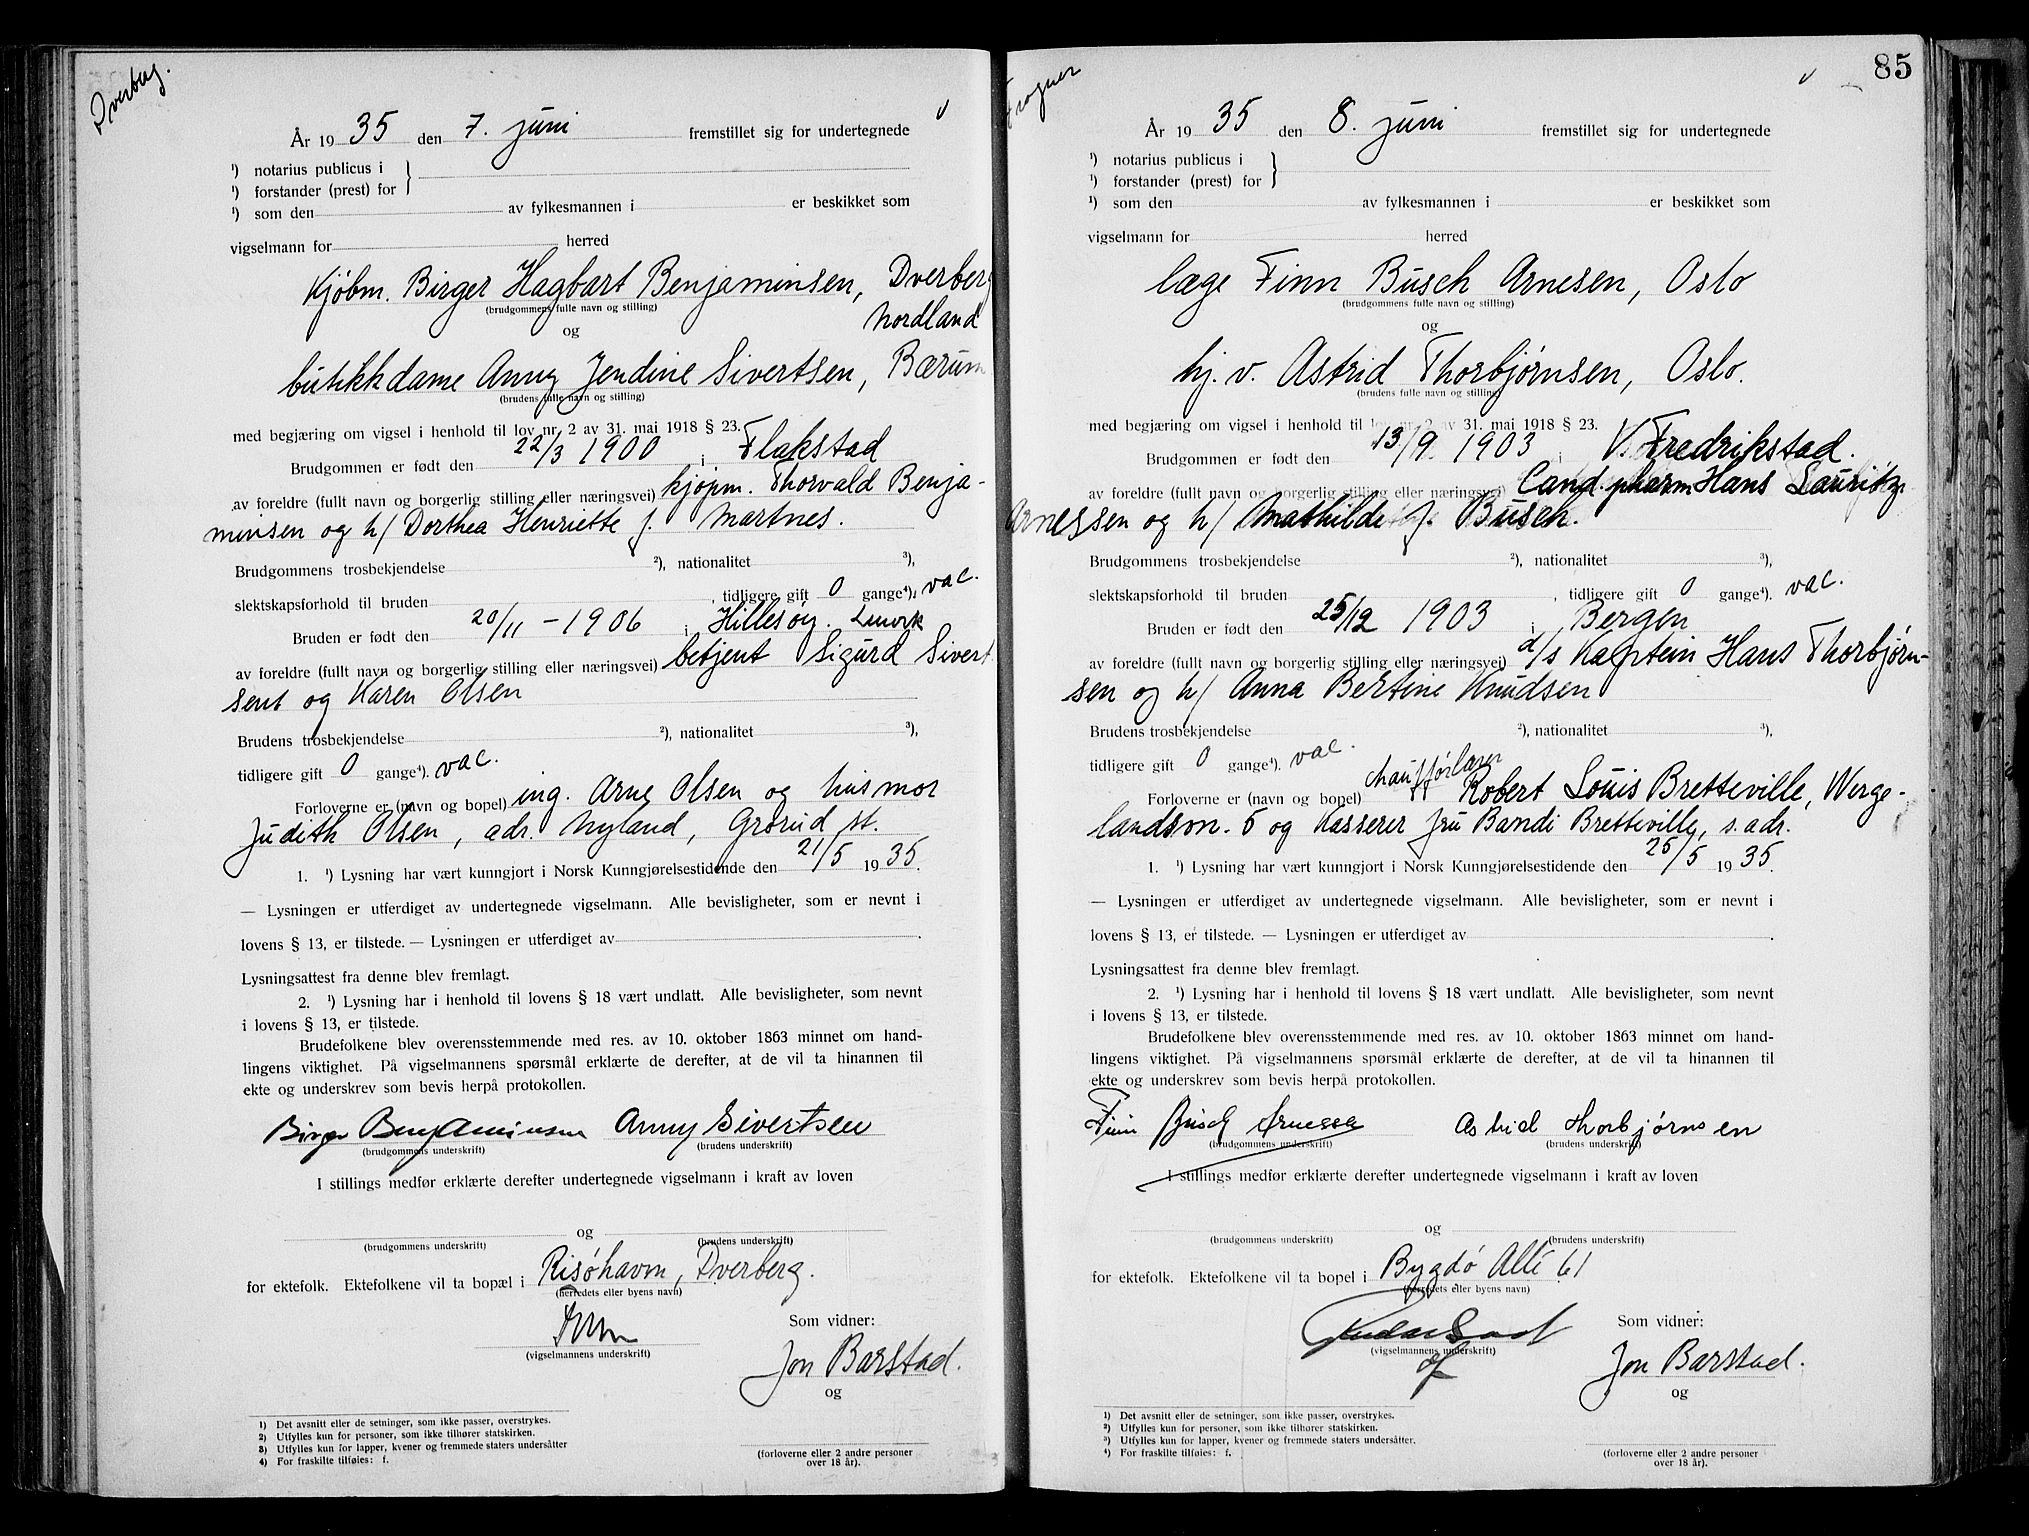 Dverberg.
År 1935 den 7. juni fremstillet sig for undertegnede
¹) notarius publicus i
¹) forstander (prest) for
¹) som den av fylkesmannen i er beskikket som
vigselmann for herred
Kjøbm. Birger Hagbart Benjaminsen, Dverberg
(brudgommens fulle navn og stilling)
Nordland
og
butikkdame Anny Jendine Sivertsen, Bærum
(brudens fulle navn og stilling)
med begjæring om vigsel i henhold til lov nr. 2 av 31. mai 1918 § 23.
Brudgommen er født den 22/3 1900 i Flakstad
av foreldre (fullt navn og borgerlig stilling eller næringsvei) kjøpm. Thorvald Benja-
minsen og h/ Dorthea Henriette f. Martnes.
Brudgommens trosbekjendelse ²), nationalitet ³),
slektskapsforhold til bruden , tidligere gift 0 gange⁴). vac.
Bruden er født den 20/11 - 1906 i Hillesøy.
av foreldre (fullt navn og borgerlig stilling eller næringsvei) betjent Sigurd Sivert
sent og Karen Olsen
Brudens trosbekjendelse ²), nationalitet ³),
tidligere gift 0 gange⁴). vac.
Forloverne er (navn og bopel) ing. Arne Olsen og husmor
Judith Olsen, adr. Nyland, Grorud st.
1. ¹) Lysning har vært kunngjort i Norsk Kunngjørelsestidende den 21/5 1935.
— Lysningen er utferdiget av undertegnede vigselmann. Alle bevisligheter, som er nevnt i
lovens § 13, er tilstede. — Lysningen er utferdiget av .
Lysningsattest fra denne blev fremlagt.
2. ¹) Lysning har i henhold til lovens § 18 vært undlatt. Alle bevisligheter, som nevnt
i lovens § 13, er tilstede.
Brudefolkene blev overensstemmende med res. av 10. oktober 1863 minnet om hand-
lingens viktighet. På vigselmannens spørsmål erklærte de derefter, at de vil ta hinannen til
ekte og underskrev som bevis herpå protokollen.
Birger Benjaminsen Anny Sivertsen
(brudgommens underskrift) (brudens underskrift)
I stillings medfør erklærte derefter undertegnede vigselmann i kraft av loven
og
(brudgommens underskrift) (brudens underskrift)
for ektefolk. Ektefolkene vil ta bopæl i Risøhavn, Dverberg.
(herredets eller byens navn)
Som vidner:
(vigselmannens underskrift)
Jon Barstad.
og
1) Det avsnitt eller de setninger, som ikke passer, overstrykes.
2) Utfylles kun for personer, som ikke tilhører statskirken.
3) Utfylles kun for lapper, kvener og fremmede staters undersåtter
4) For fraskilte tilføies: f.
(forloverne eller 2 andre personer
over 18 år).
Frogner
85
År 1935 den 8. juni fremstillet sig for undertegnede
¹) notarius publicus i
¹) forstander (prest) for
¹) som den av fylkesmannen i er beskikket som
vigselmann for herred
læge Finn Busch Arnesen, Oslo
(brudgommens fulle navn og stilling)
og
hj. v. Astrid Thorbjørnsen, Oslo.
(brudens fulle navn og stilling)
med begjæring om vigsel i henhold til lov nr. 2 av 31. mai 1918 § 23.
Brudgommen er født den 13/9 1903 i V. Fredrikstad.
av foreldre (fullt navn og borgerlig stilling eller næringsvei) Cand. pharm Hans Lauritz
Arnessen og h/ Mathilde f. Busch.
Brudgommens trosbekjendelse ²), nationalitet ³),
slektskapsforhold til bruden , tidligere gift 0 gange⁴). vac.
Bruden er født den 25/12 1903 i Bergen
av foreldre (fullt navn og borgerlig stilling eller næringsvei) d/s Kaptein Hans Thorbjørn-
sen og h/ Anna Bertine Knudsen
Brudens trosbekjendelse ²), nationalitet ³),
tidligere gift 0 gange⁴). vac.
Forloverne er (navn og bopel) chaufførlærer Robert Louis Bretteville, Werge-
landsvn. 5 og Kasserer fru Bandi Bretteville, s. adr.
1. ¹) Lysning har vært kunngjort i Norsk Kunngjørelsestidende den 25/5 1935.
— Lysningen er utferdiget av undertegnede vigselmann. Alle bevisligheter, som er nevnt i
lovens § 13, er tilstede. — Lysningen er utferdiget av .
Lysningsattest fra denne blev fremlagt.
2. ¹) Lysning har i henhold til lovens § 18 vært undlatt. Alle bevisligheter, som nevnt
i lovens § 13, er tilstede.
Brudefolkene blev overensstemmende med res. av 10. oktober 1863 minnet om hand-
lingens viktighet. På vigselmannens spørsmål erklærte de derefter, at de vil ta hinannen til
ekte og underskrev som bevis herpå protokollen.
Finn Busch Arnesen Astrid Thorbjørnsen
(brudgommens underskrift) (brudens underskrift)
I stillings medfør erklærte derefter undertegnede vigselmann i kraft av loven
og
(brudgommens underskrift) (brudens underskrift)
for ektefolk. Ektefolkene vil ta bopel i Bygdø Allé 61
(herredets eller byens navn)
Som vidner:
(vigselmannens underskrift)
Jon Barstad.
og
1) Det avsnitt eller de setninger, som ikke passer, overstrykes.
2) Utfylles kun for personer, som ikke tilhører statskirken.
3) Utfylles kun for lapper, kvener og fremmede staters undersåtter.
4) For fraskilte tilføies: f.
(forloverne eller 2 andre personer
over 18 år).